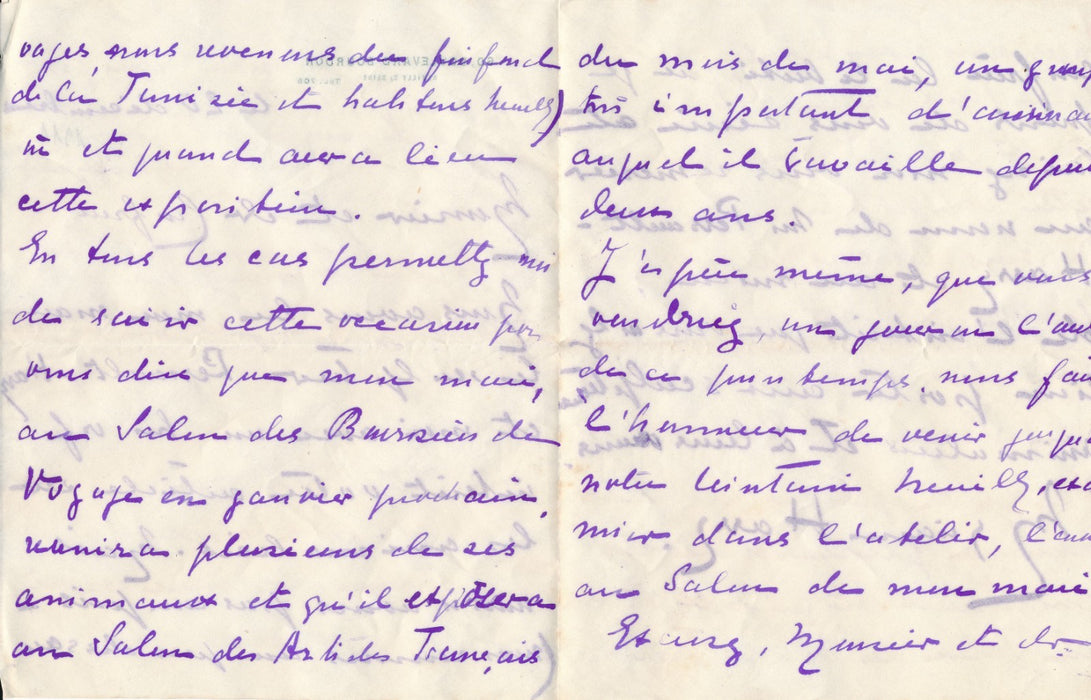 vages, nous revenons du fin fond
de la Tunisie et habitons Neuilly)
où et quand aura lieu
cette exposition.
En tous les cas permettez-moi
de saisir cette occasion pour
vous dire que mon mari,
au Salon des Boursiers de
Voyage en janvier prochain,
réunira plusieurs de ses
animaux et qu'il exposera
au Salon des Artistes Français
du mois de mai, un groupe
très important
auquel il travaille depuis
deux ans.
J'espère même, que vous
voudriez, un jour
de ce printemps, nous faire
l'honneur de venir jusqu'à
notre lointain Neuilly,
dans l'atelier,
au Salon de mon mari
Monsieur et